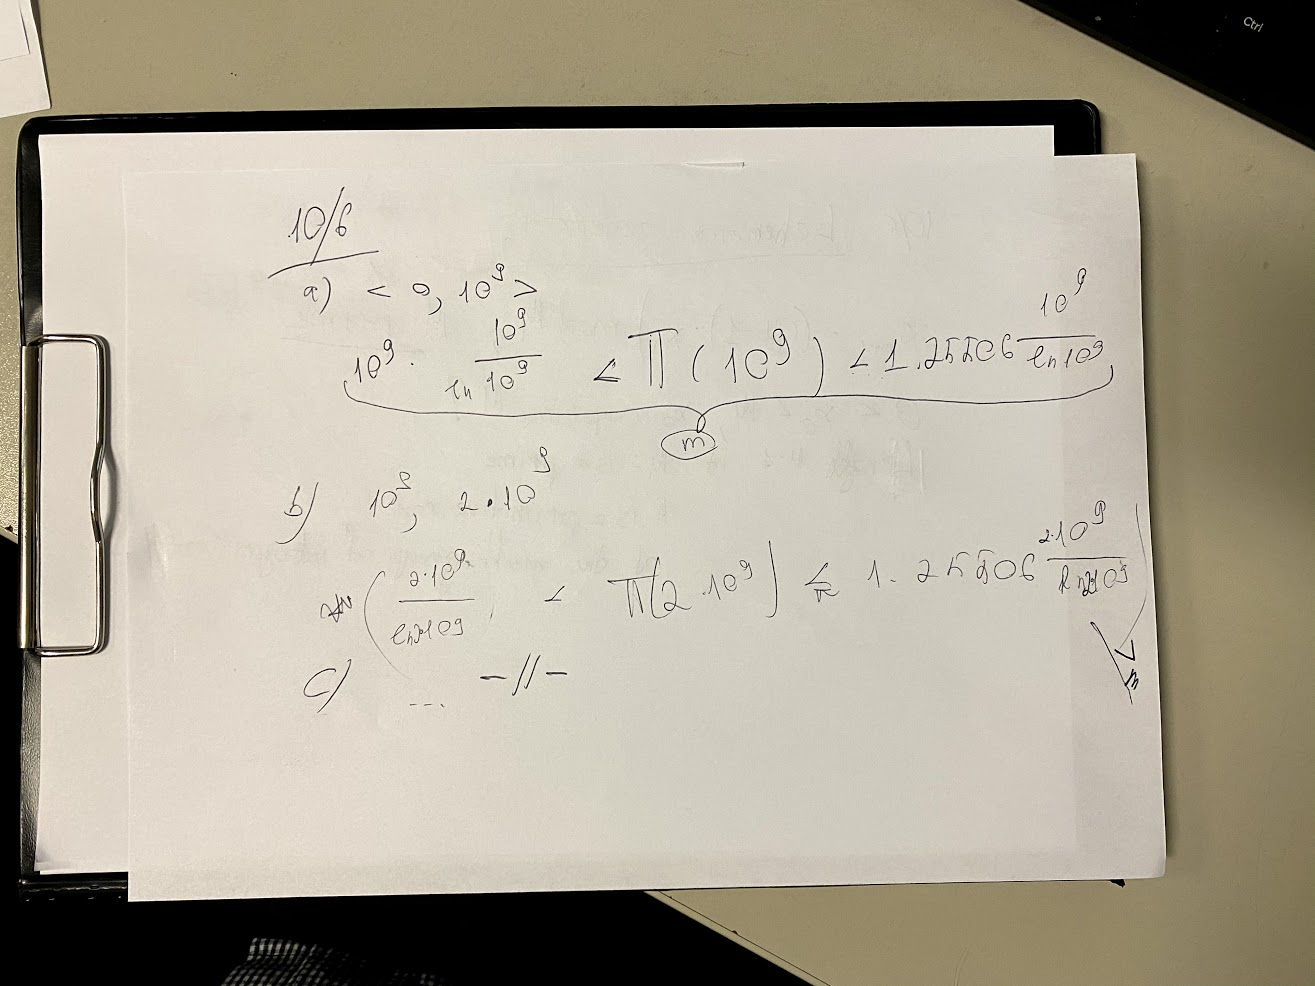 Ctrl
10/6
a) < 0, 10^9 >
10^9 · 10^9 / ln 10^9 < π(10^9) < 1.25506 10^9 / ln 10^9
m
b) 10^9, 2·10^9
( 2·10^9 / ln 2·10^9 < π(2·10^9) ≤ 1.25506 2·10^9 / ln 2·10^9 )
c) ... -//-